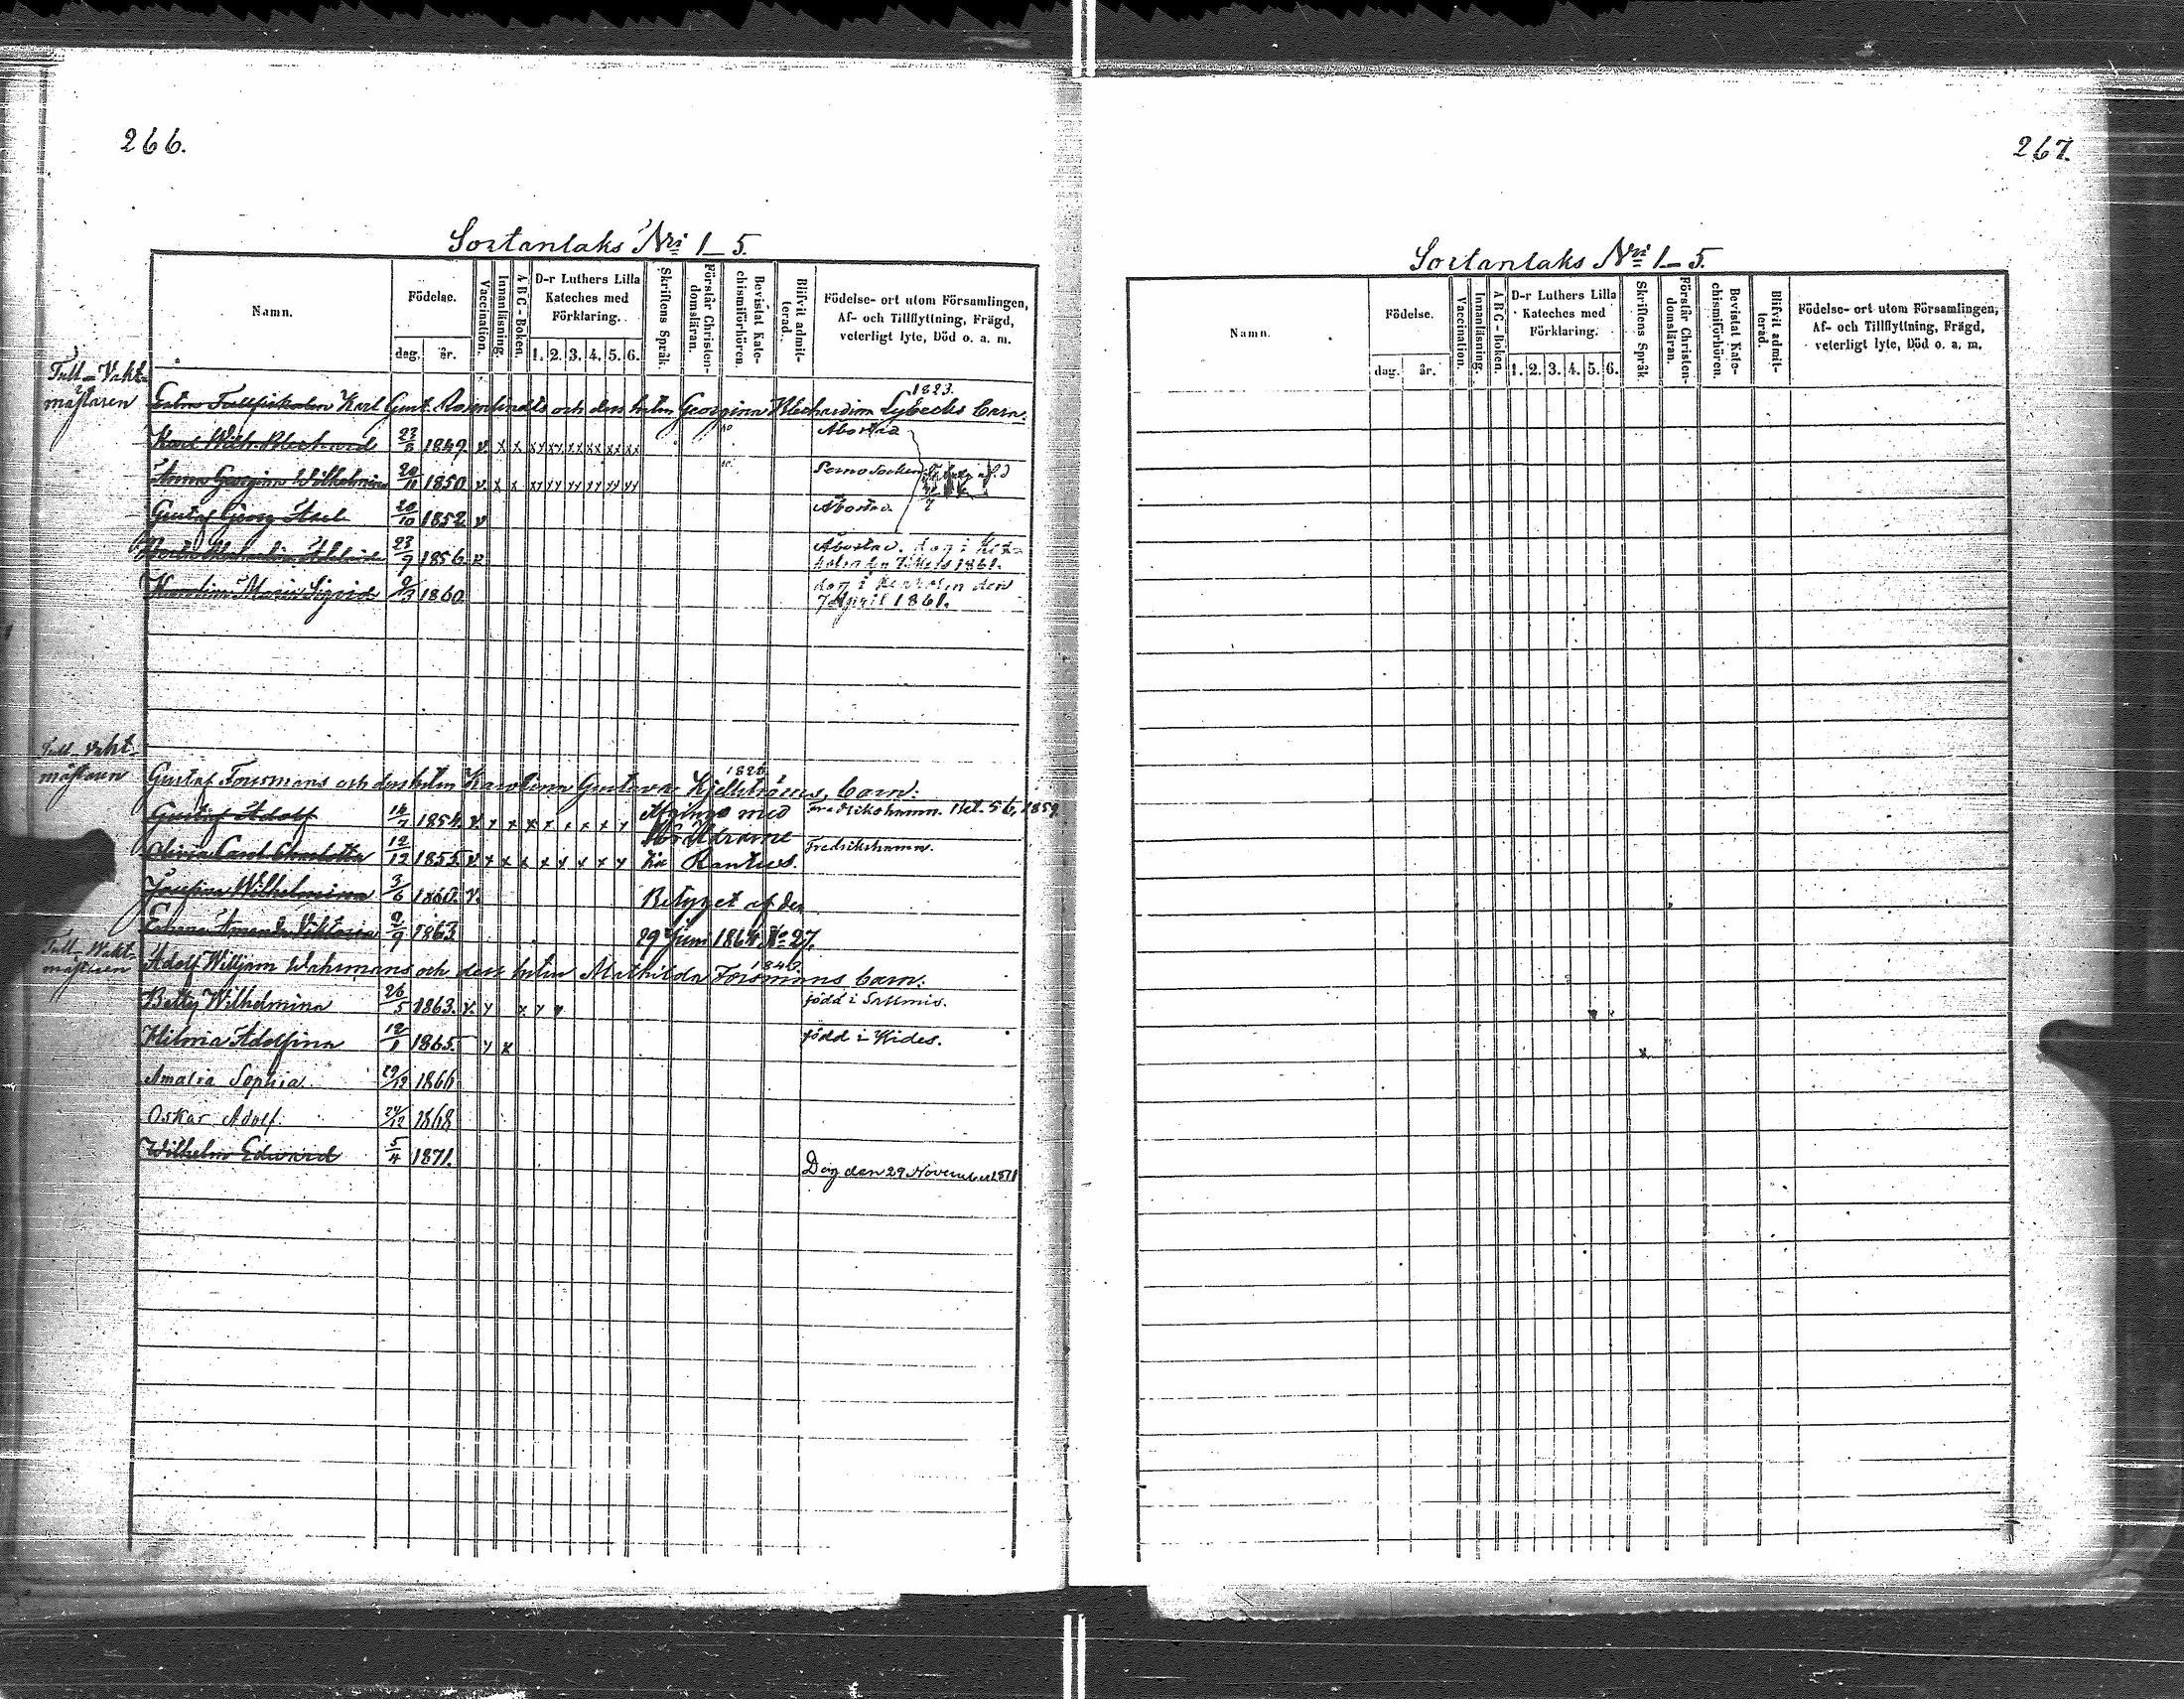 266.
Sortanlaks Nri 1–5.
Namn.
Födelse.
dag. år.
Vaccination.
Innanläsning.
ABC-Boken.
D-r Luthers Lilla Kateches med Förklaring.
1. 2. 3. 4. 5. 6.
Skriftens Språk.
Förstår Christen-domsläran.
Bevistat Kate-chismiförhören.
Blifvit admit-terad.
Födelse- ort utom Församlingen,
Af- och Tillflyttning, Frägd,
veterligt lyte, Död o. a. m.
Tull-Vakt-
mästaren
1823.
Karl Gust. Rosenlindts och dess hustru Georgina Lybecks barn.
Karl Wilh. 23/8 1849. v. x x xx xx xx xx xx xx Åbo stad
Anna Georgina Wilhelmina 20/11 1850 v. x x xx xx xx xx xx xx Socken
Gustaf Georg Axel 20/10 1852 v Åbo stad.
23/9 1856. Åbo stad. dog i
1861.
Karolina Maria Sigrid 9/3 1860 dog i den
7 April 1861.
Tull-Vakt-
mästaren
1826
Gustaf Forsmans och dess hustru Karolina Gustava barn:
Gustaf Adolf 16/7 1854. v y x x x x x x y med Fredrikshamn. Att. 56, 1859
Föräldrarne
Olivia Carol. Charlotta 12/12 1855 v y x x x y x x y Fredrikshamn.
Josefina Wilhelmina 3/6 1860. v. Betyget af den
Amanda Viktoria 9/9 1863 29 Juni 1864 No 27.
Tull-Wakt-
mästaren
1840.
Adolf Williām Wahrmans och dess hustru Mathilda Forsmans barn:
Betty Wilhelmina 26/5 1863. v. y x y y född i Salmis.
Hilma Adolfina 12/1 1865. y x född i Kides.
Amalia Sophia. 29/12 1866
Oskar Adolf. 24/12 1868
Wilhelm Edward 5/4 1871.
Dog den 29 November 1871
267.
Sortanlaks Nri 1–5.
Namn.
Födelse.
dag. år.
Vaccination.
Innanläsning.
ABC-Boken.
D-r Luthers Lilla Kateches med Förklaring.
1. 2. 3. 4. 5. 6.
Skriftens Språk.
Förstår Christen-domsläran.
Bevistat Kate-chismiförhören.
Blifvit admit-terad.
Födelse- ort utom Församlingen,
Af- och Tillflyttning, Frägd,
veterligt lyte, Död o. a. m.